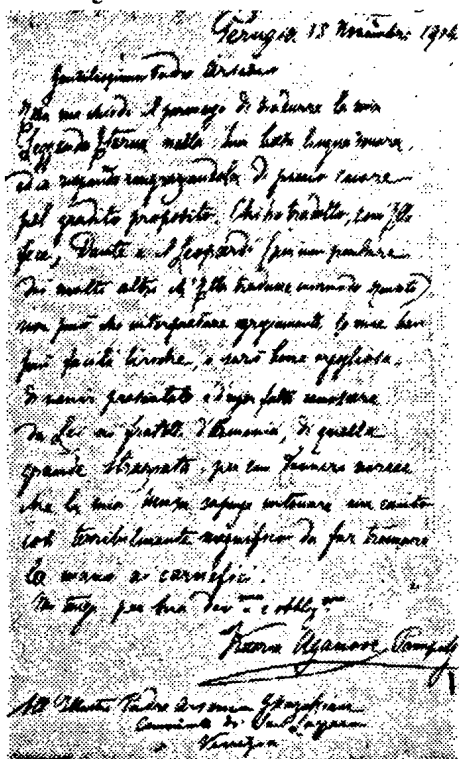 Perugia 13 Novembre 1904
Gentilissimo Padre Arsenio
Ella mi chiede il permesso di tradurre la mia
Leggenda Eterna nella sua bella lingua sonora,
ed io rispondo ringraziandola di cuore
pel gradito proposito. Chi ha tradotto, com' Ella
fece, Dante e il Leopardi (per non parlare
dei molti altri ch' Ella tradusse
non può che interpretare egregiamente le mie ben
più facili liriche, e sarò bene orgogliosa
di venir presentata e di
da Lei ai fratelli d'Armenia, di quella
grande straziata, per cui
che la mia penna sapesse intonare un canto
così terribilmente magnifico da far tremare
la mano ai carnefici.
Mi tenga per Sua dev.ma e obbl.ma
Vittoria Aganoor Pompilj
All' Illustre Padre Arsenio Ghazikian
Convento di San Lazzaro
Venezia